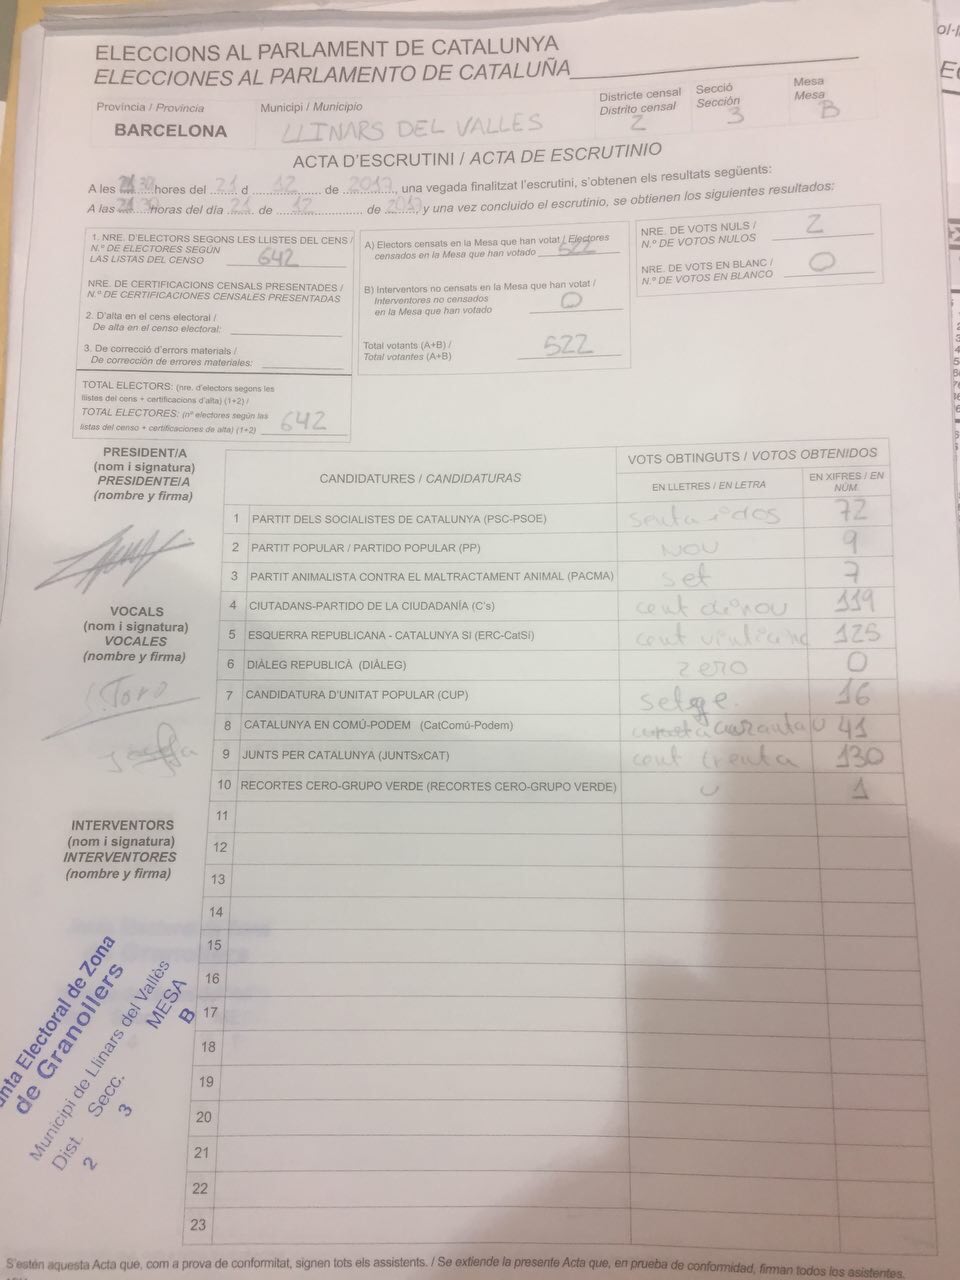 ELECCIONS AL PARLAMENT DE CATALUNYA
ELECCIONES AL PARLAMENTO DE CATALUÑA
Província / Provincia
BARCELONA
Municipi / Municipio
LLINARS DEL VALLES
Districte censal
Distrito censal
2
Secció
Sección
3
Mesa
Mesa
B
ACTA D'ESCRUTINI / ACTA DE ESCRUTINIO
A les hores del 21 d 12 de 2017, una vegada finalitzat l'escrutini, s'obtenen els resultats següents:
A las horas del día 21 de 12 de 2017 y una vez concluido el escrutinio, se obtienen los siguientes resultados:
1. NRE. D'ELECTORS SEGONS LES LLISTES DEL CENS /
N.º DE ELECTORES SEGÚN
LAS LISTAS DEL CENSO 642
NRE. DE CERTIFICACIONS CENSALS PRESENTADES /
N.º DE CERTIFICACIONES CENSALES PRESENTADAS
2. D'alta en el cens electoral /
De alta en el censo electoral:
3. De correcció d'errors materials /
De corrección de errores materiales:
TOTAL ELECTORS: (nre. d'electors segons les
llistes del cens + certificacions d'alta) (1+2) /
TOTAL ELECTORES: (nº electores según las
listas del censo + certificaciones de alta) (1+2) 642
A) Electors censats en la Mesa que han votat / Electores
censados en la Mesa que han votado 522
B) Interventors no censats en la Mesa que han votat /
Interventores no censados
en la Mesa que han votado 0
Total votants (A+B) /
Total votantes (A+B) 522
NRE. DE VOTS NULS /
N.º DE VOTOS NULOS 2
NRE. DE VOTS EN BLANC /
N.º DE VOTOS EN BLANCO 0
PRESIDENT/A
(nom i signatura)
PRESIDENTE/A
(nombre y firma)
VOCALS
(nom i signatura)
VOCALES
(nombre y firma)
Toro
INTERVENTORS
(nom i signatura)
INTERVENTORES
(nombre y firma)
CANDIDATURES / CANDIDATURAS
VOTS OBTINGUTS / VOTOS OBTENIDOS
EN LLETRES / EN LETRA
EN XIFRES / EN
NÚM.
1 PARTIT DELS SOCIALISTES DE CATALUNYA (PSC-PSOE) 72
2 PARTIT POPULAR / PARTIDO POPULAR (PP) NOU 9
3 PARTIT ANIMALISTA CONTRA EL MALTRACTAMENT ANIMAL (PACMA) set 7
4 CIUTADANS-PARTIDO DE LA CIUDADANÍA (C's) cent dinou 119
5 ESQUERRA REPUBLICANA - CATALUNYA SI (ERC-CatSí) cent 125
6 DIÀLEG REPUBLICÀ (DIÀLEG) zero 0
7 CANDIDATURA D'UNITAT POPULAR (CUP) 16
8 CATALUNYA EN COMÚ-PODEM (CatComú-Podem) 41
9 JUNTS PER CATALUNYA (JUNTSxCAT) cent trenta 130
10 RECORTES CERO-GRUPO VERDE (RECORTES CERO-GRUPO VERDE) U 1
11
12
13
14
15
16
17
18
19
20
21
22
23
Electoral de Zona
de Granollers
Municipi de Llinars del Vallès
Dist. Secc. MESA
2 3 B
S'estén aquesta Acta que, com a prova de conformitat, signen tots els assistents. / Se extiende la presente Acta que, en prueba de conformidad, firman todos los asistentes.